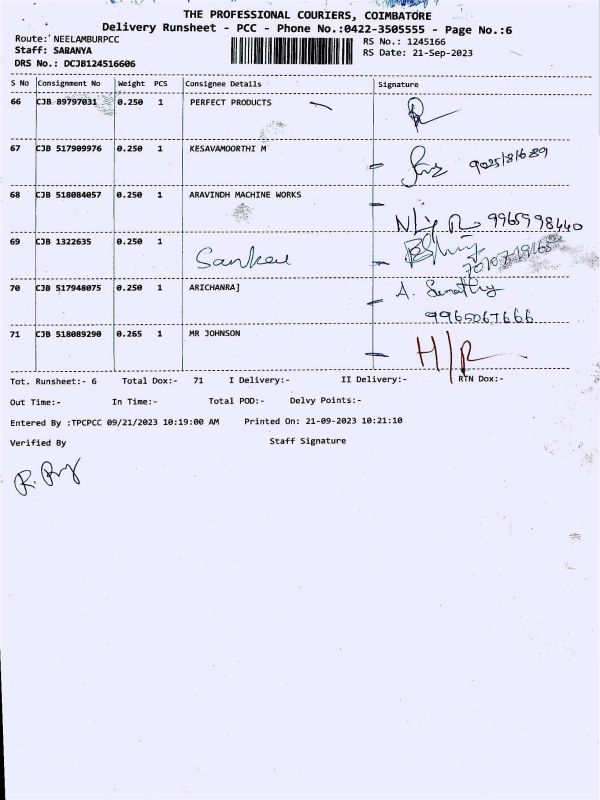 THE PROFESSIONAL COURIERS, COIMBATORE
Delivery Runsheet - PCC - Phone No.:0422-3505555 - Page No.:6
Route: NEELAMBURPCC
RS No.: 1245166
Staff: SARANYA
RS Date: 21-Sep-2023
DRS No.: DCJB124516606
S No Consignment No Weight PCS Consignee Details Signature
66 CJB 89797031 0.250 1 PERFECT PRODUCTS
67 CJB 517909976 0.250 1 KESAVAMOORTHI M
68 CJB 518084057 0.250 1 ARAVINDH MACHINE WORKS
9965998440
69 CJB 1322635 0.250 1
70 CJB 517948075 0.250 1 ARICHANRAJ
9965067666
71 CJB 518089290 0.265 1 MR JOHNSON
H/R
Tot. Runsheet:- 6 Total Dox:- 71 I Delivery:- II Delivery:- RTN Dox:-
Out Time:- In Time:- Total POD:- Delvy Points:-
Entered By :TPCPCC 09/21/2023 10:19:00 AM Printed On: 21-09-2023 10:21:10
Verified By Staff Signature